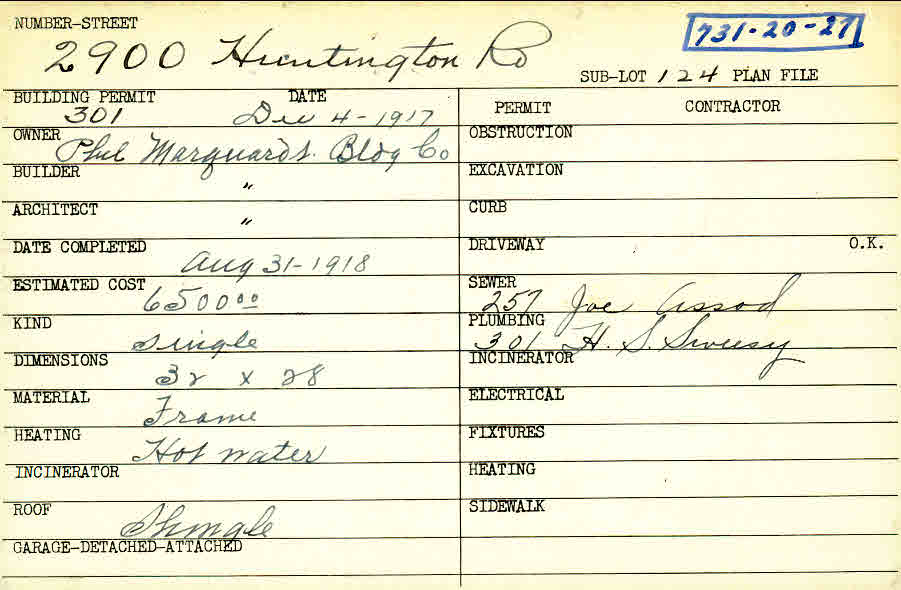 NUMBER-STREET
2900 Huntington Rd
731-20-27
SUB-LOT 124 PLAN FILE
BUILDING PERMIT DATE
301 Dec 4-1917
OWNER
Phil Marquardt. Bldg Co
BUILDER
"
ARCHITECT
"
DATE COMPLETED
Aug 31-1918
ESTIMATED COST
6500 00
KIND
Single
DIMENSIONS
32 x 28
MATERIAL
Frame
HEATING
Hot water
INCINERATOR
ROOF
Shingle
GARAGE-DETACHED-ATTACHED
PERMIT CONTRACTOR
OBSTRUCTION
EXCAVATION
CURB
DRIVEWAY O.K.
SEWER
257 Joe Assad
PLUMBING
301 H. S.
INCINERATOR
ELECTRICAL
FIXTURES
HEATING
SIDEWALK